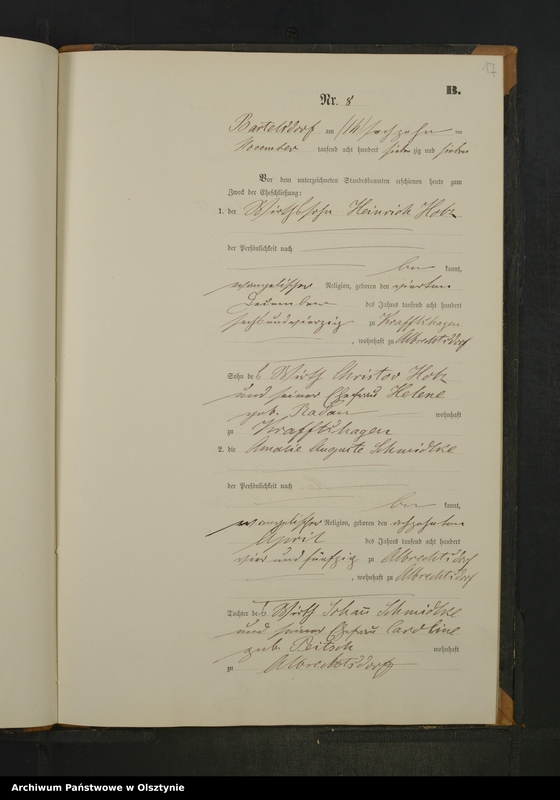 17
B.
Nr. 8
Bartelsdorf am (16) sechzehn ten
November tausend acht hundert sieben zig und sieben
Vor dem unterzeichneten Standesbeamten erschienen heute zum
Zweck der Eheschließung:
1. der Wirthssohn Heinrich Hotz
der Persönlichkeit nach
be kannt,
evangelischer Religion, geboren den vierten
Dezember des Jahres tausend acht hundert
sechsundvierzig zu Krafftshagen
, wohnhaft zu Albrechtsdorf
Sohn des Wirth Christov Hotz
und seiner Ehefrau Helene
geb. Radau wohnhaft
zu Krafftshagen
2. die Amalie Auguste Schmidtke
der Persönlichkeit nach
be kannt,
evangelischer Religion, geboren den
April des Jahres tausend acht hundert
vier und fünfzig zu Albrechtsdorf
, wohnhaft zu Albrechtsdorf
Tochter des Wirth Johann Schmidtke
und seiner Ehefrau Caroline
geb. Peitsch wohnhaft
zu Albrechtsdorf
Archiwum Państwowe w Olsztynie